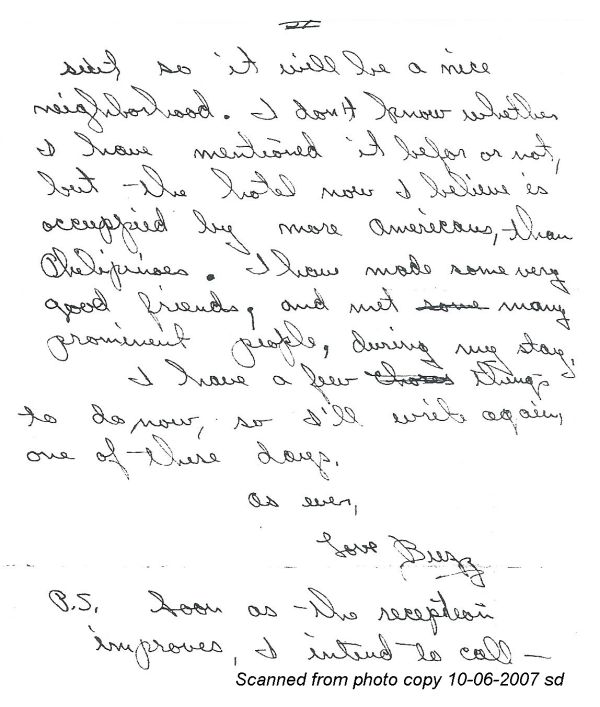 II
suit, so it will be a nice
neighborhood. I don't know whether
I have mentioned it befor or not,
but the hotel now I believe is
occuppied by more Americans, than
Philipinoes. I have made some very
good friends, and met some many
prominent people, during my stay.
I have a few chores things
to do now, so I'll write again,
one of these days.
as ever,
Love Buzz
P.S. Soon as the reception
improves, I intend to call —
Scanned from photo copy 10-06-2007 sd